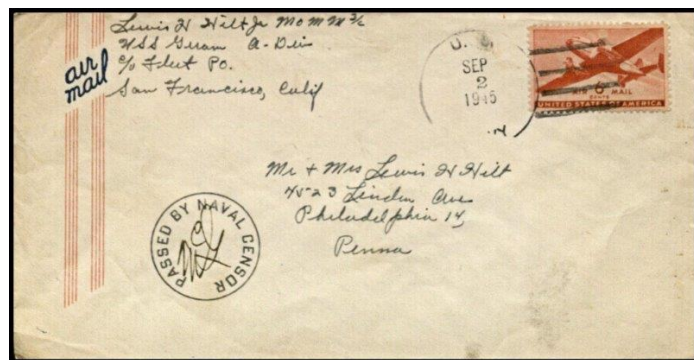 Lewis H Hilt Jr MoMM 3/c
USS Guam A-Div
c/o Fleet PO.
San Francisco, Calif
air
mail
U.S.
SEP
2
1945
AIR 6 MAIL
CENTS
UNITED STATES OF AMERICA
Mr + Mrs Lewis H Hilt
4523 Linden Ave
Philadelphia 14,
Penna
PASSED BY NAVAL CENSOR